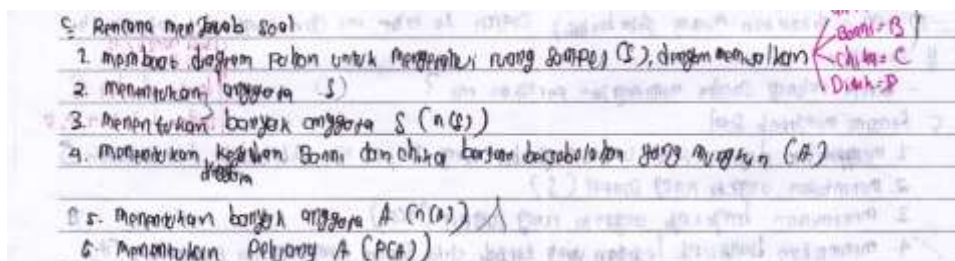 C. Rencana menjawab soal
1. membuat diagram Pohon untuk mengetahui ruang sampel (S), dengan memisalkan
Bonni = B
Chika = C
Dinah = D
2. menentukan anggota S
3. menentukan banyak anggota S (n(s))
4. menentukan kejadian Bonni dan chika bersebelahan yang mungkin (A)
5. menentukan banyak anggota A (n(A))
6 menentukan Peluang A (P(A))